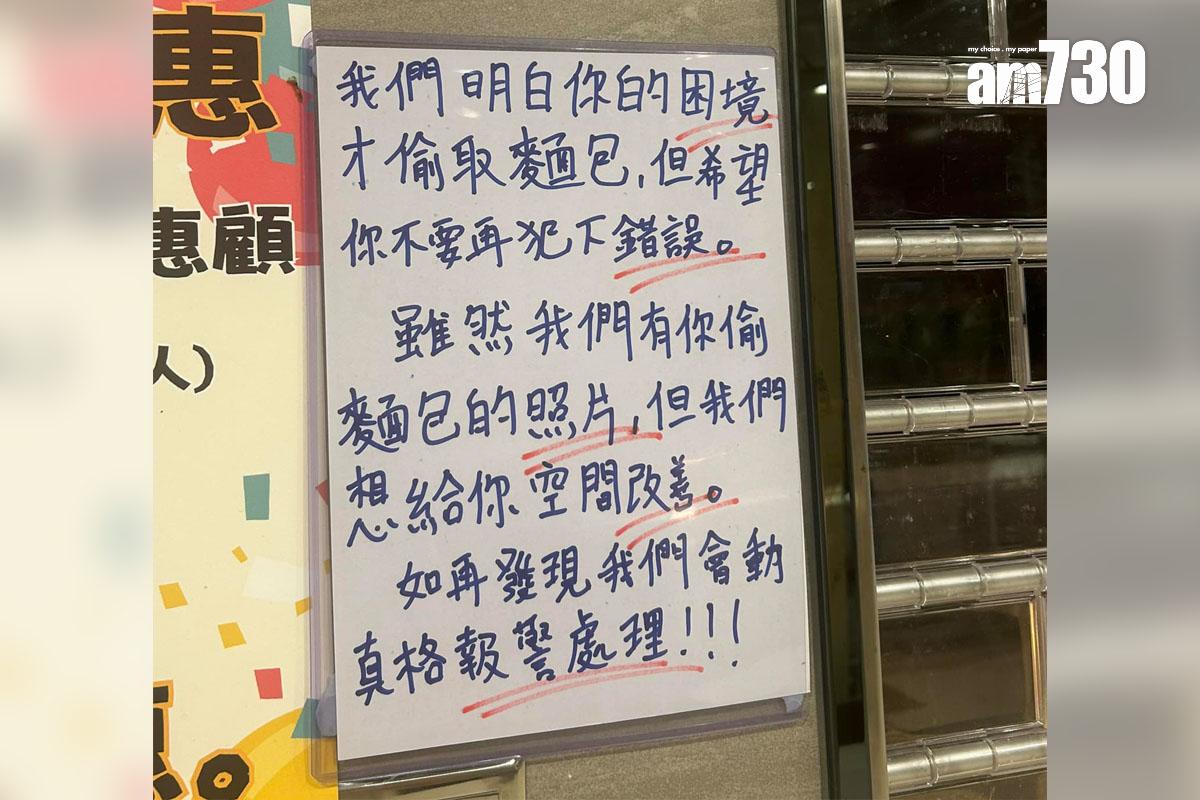 my choice . my paper
am730
惠
惠顧
人)
惠。
我們明白你的困境
才偷取麵包,但希望
你不要再犯下錯誤。
雖然我們有你偷
麵包的照片,但我們
想給你空間改善。
如再發現我們會動
真格報警處理!!!